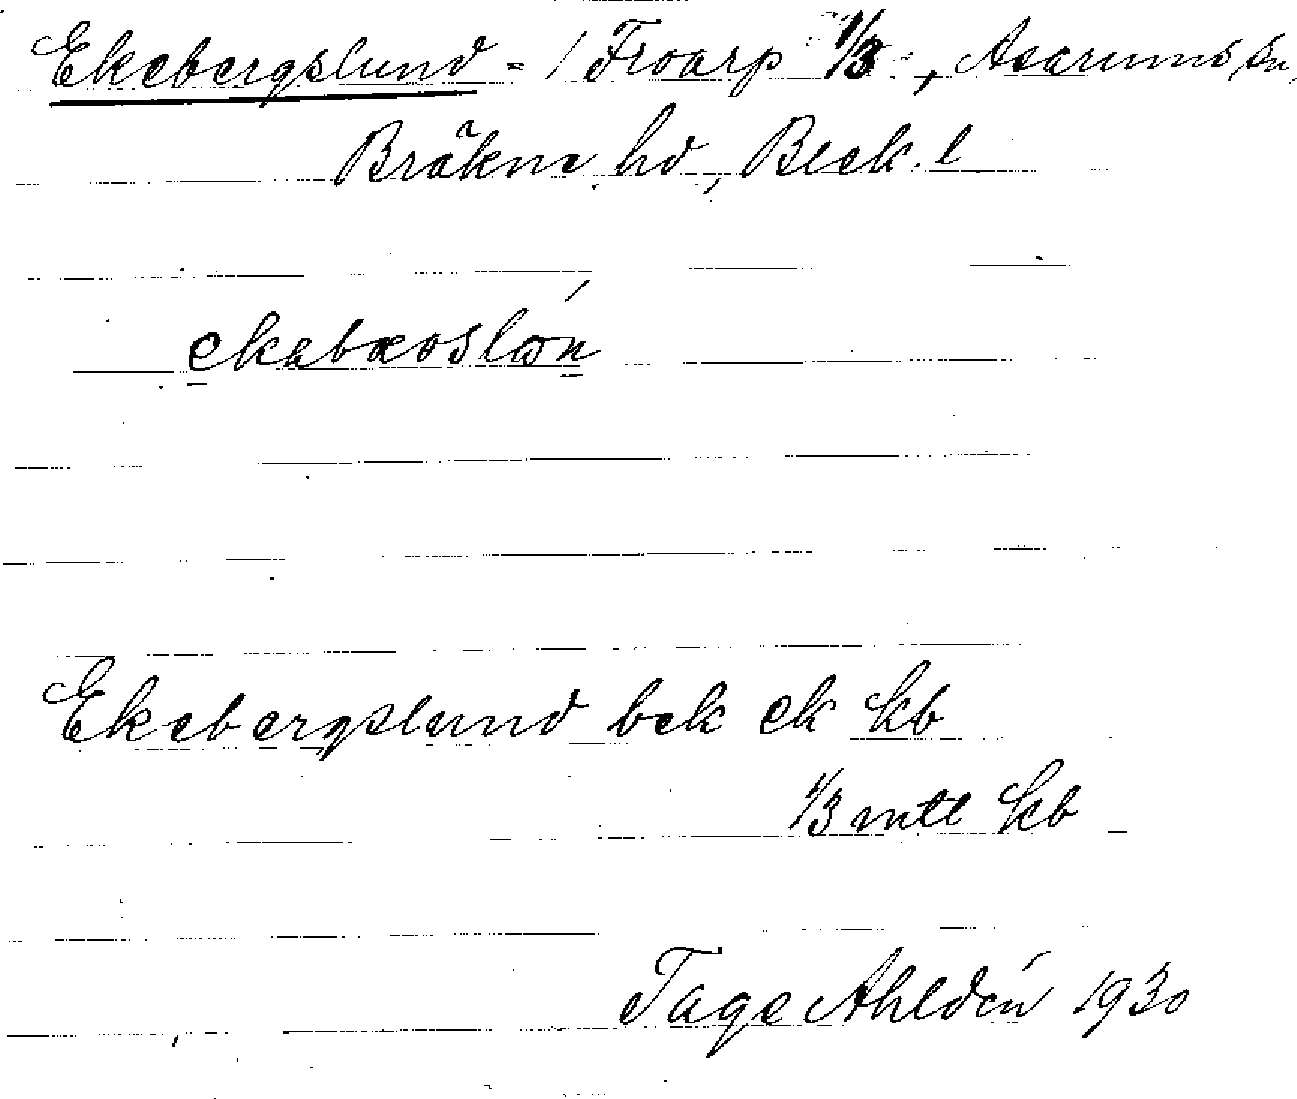 Ekebergslund = / Froarp 1/3, Asarums sn,
Bräkne hd, Blek. l
ekabæoslon
Ekebergslund bek ek kb
1/3 mtl kb
Tage Ahldén 1930